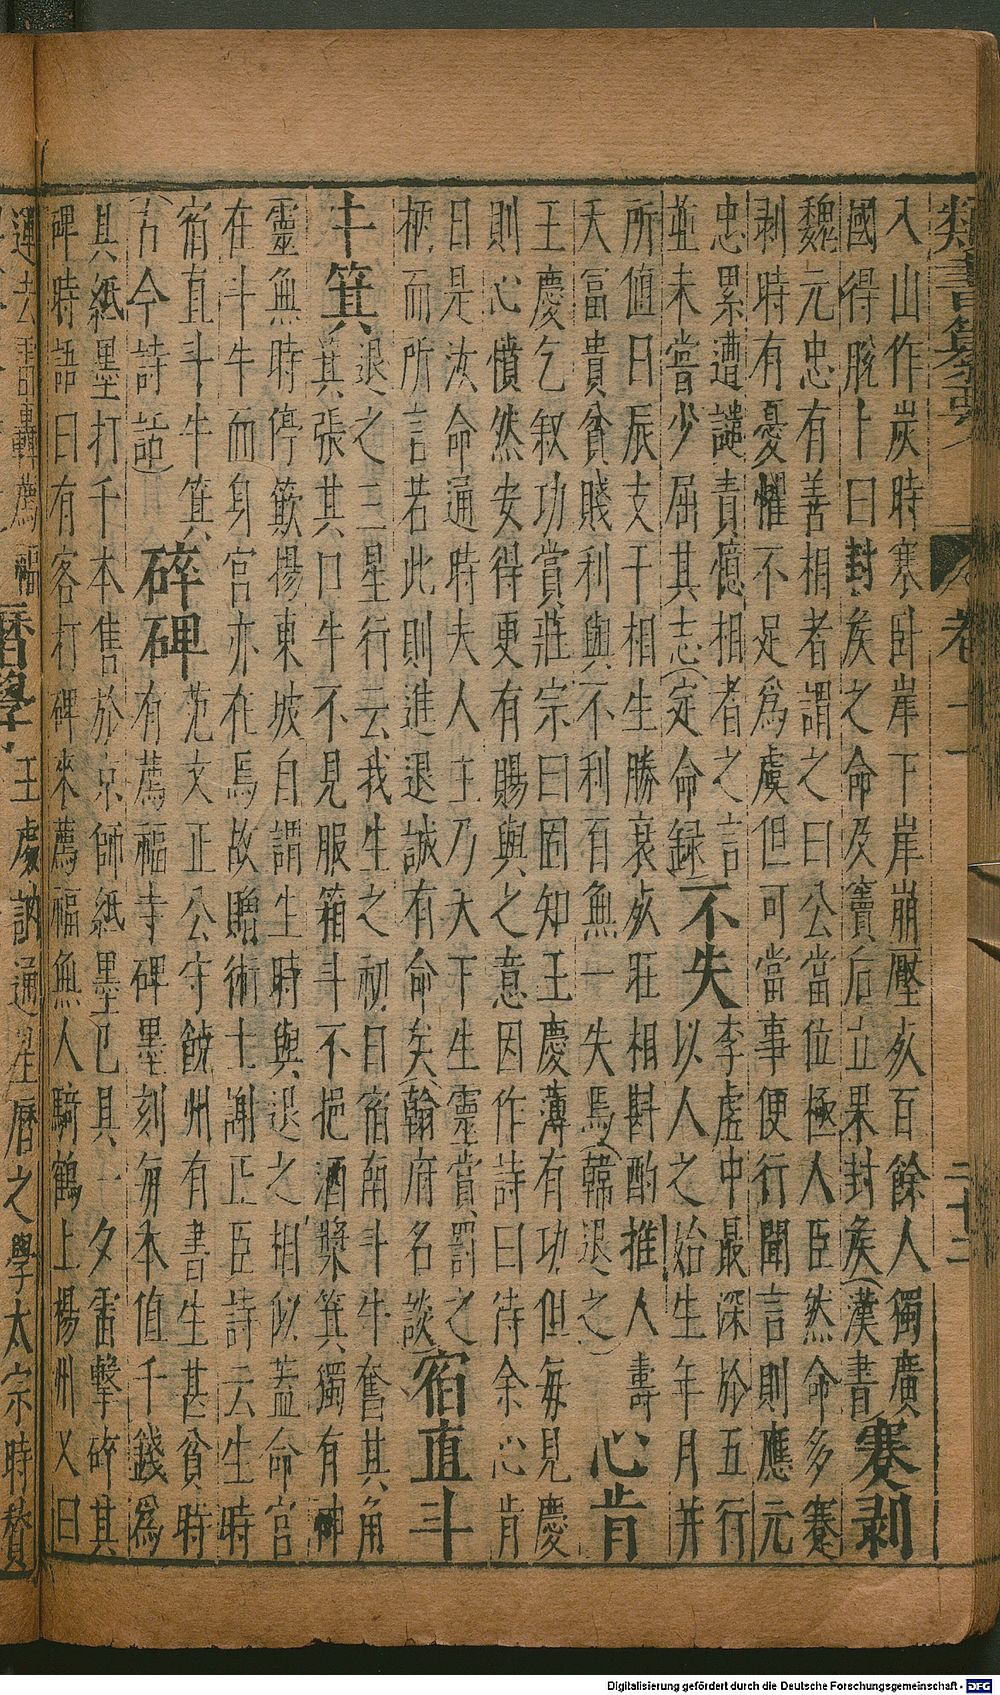 類書纂要 卷十一 二十二
入山作炭時寒卧岸下岸崩壓死百餘人獨廣
國得脫卜曰封矦之命及竇后立果封矦(漢書)
蹇剥
魏元忠有善相者謂之曰公當位極人臣然命多蹇
剥時有憂懼不足為虞但可當事便行聞言則應元
忠累遭譴責憶相者之言
並未嘗少屈其志(定命録)
不失
李虛中最深於五行
以人之始生年月并
所值日辰支干相生勝衰死旺相斟酌推人壽
夭富貴貧賤利與不利百無一失焉(韓退之)
心肯
王慶乞叙功賞莊宗曰固知王慶薄有功但每見慶
則心憤然安得更有賜與之意因作詩曰待余心肯
日是汝命通時夫人主乃天下生靈賞罰之
柄而所言若此則進退誠有命矣(翰府名談)
宿直斗
牛箕
退之三星行云我生之初日宿南斗牛奮其角
箕張其口牛不見服箱斗不挹酒漿箕獨有神
靈無時停簸揚東坡自謂生時與退之相似蓋命宮
在斗牛而身宮亦在焉故贈術士謝正臣詩云生時
宿直斗牛箕
(古今詩話)
碎碑
范文正公守饒州有書生甚貧時
有薦福寺碑墨刻每本值千錢為
其紙墨打千本售於京師紙墨已具一夕雷擊碎其
碑時語曰有客打碑來薦福無人騎鶴上楊州又曰
運去雷轟薦福
曆學
王處訥通星曆之學太宗時贊
Digitalisierung gefördert durch die Deutsche Forschungsgemeinschaft - DFG